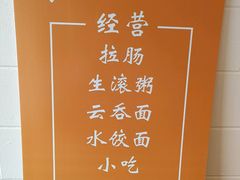 经营
拉肠
生滚粥
云吞面
水饺面
小吃